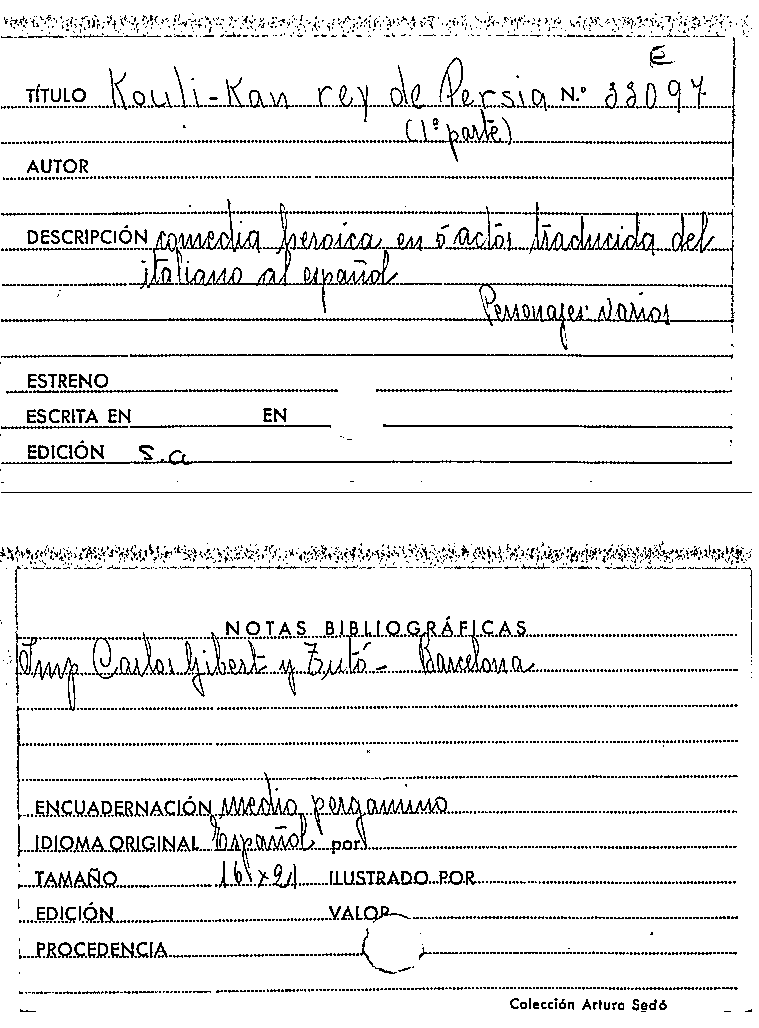 E
TÍTULO Kouli-Kan rey de Persia N.º 33097
(1ª parte)
AUTOR
DESCRIPCIÓN comedia heroica en 5 actos traducida del
italiano al español
Personajes varios
ESTRENO
ESCRITA EN EN
EDICIÓN S.a
NOTAS BIBLIOGRÁFICAS
Imp Carlos Gibert y Tutó - Barcelona
ENCUADERNACIÓN medio pergamino
IDIOMA ORIGINAL Español por
TAMAÑO 16 x 21 ILUSTRADO POR
EDICIÓN VALOR
PROCEDENCIA
Colección Arturo Sedó